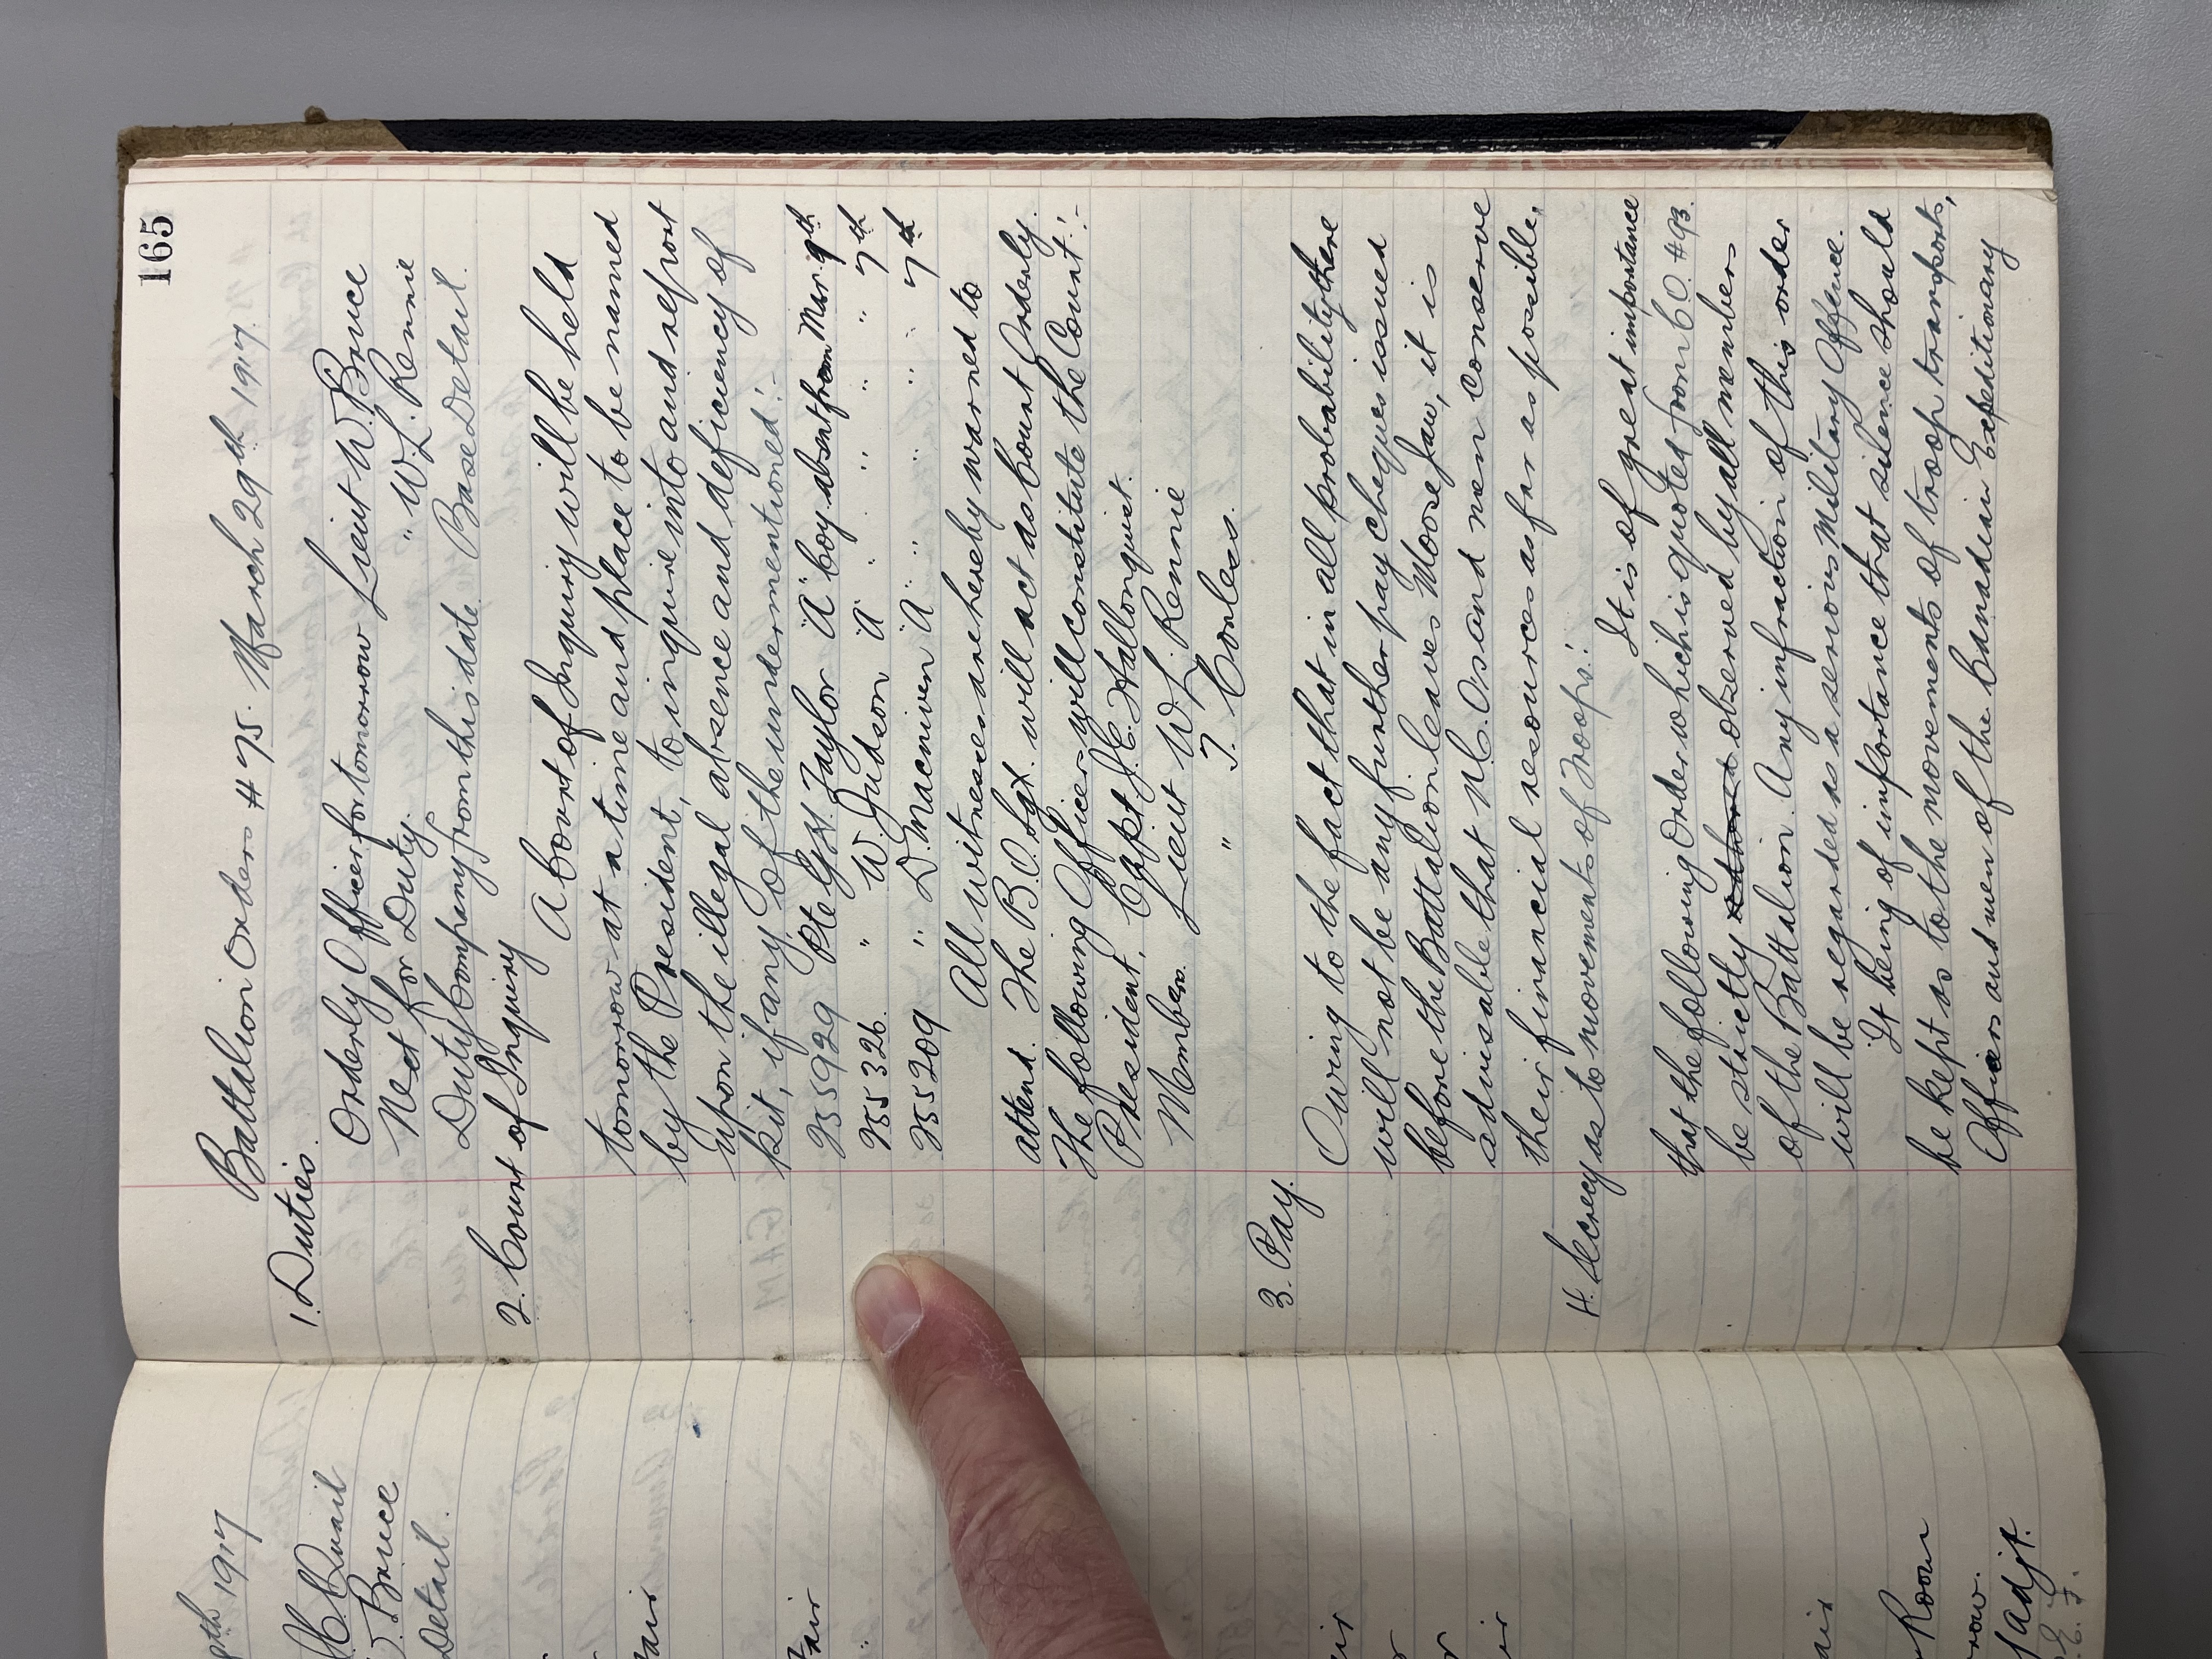 165
Battalion Orders # 75. March 29th 1917.
1. Duties.
Orderly Officer for tomorrow Lieut W. Bruce
Next for Duty. " W. L. Rennie
Duty Company from this date. Base Detail.
2. Court of Inquiry
A Court of Inquiry will be held
tomorrow at a time and place to be named
by the President, to inquire into and report
upon the illegal absence and deficiency of
kit, if any, of the undermentioned:-
255929 Pte G. H. Taylor "A" Coy absent from Mar. 9th
255326. " W. Judson "A" " " " " 7th
255209 " D. Macniven "A" " " " " 7th
All witnesses are hereby warned to
attend. The B.O. Sgt. will act as Court Orderly.
The following Officers will constitute the Court:-
President, Capt J. C. Hallonquist.
Members. Lieut W. L. Rennie
" T. Conless.
3. Pay.
Owing to the fact that in all probability there
will not be any further pay cheques issued
before the Battalion leaves Moose Jaw, it is
advisable that N.C.O's and men conserve
their financial resources as far as possible.
4. Secrecy as to movements of Troops:
It is of great importance
that the following Order which is quoted from C.O. #93.
be strictly observed by all members
of the Battalion. Any infraction of this order
will be regarded as a serious Military Offence.
It being of importance that silence should
be kept as to the movements of troop transports,
Officers and men of the Canadian Expeditionary
1917
Quail
Bruce
Detail.
Room
row.
adjt.
E. F.